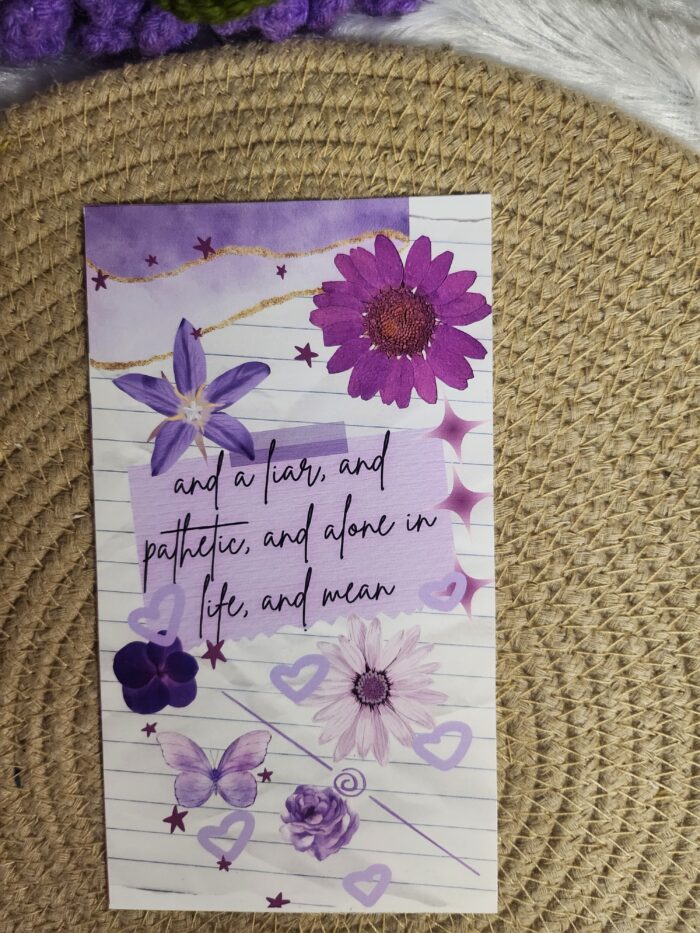 and a liar, and
pathetic, and alone in
life, and mean